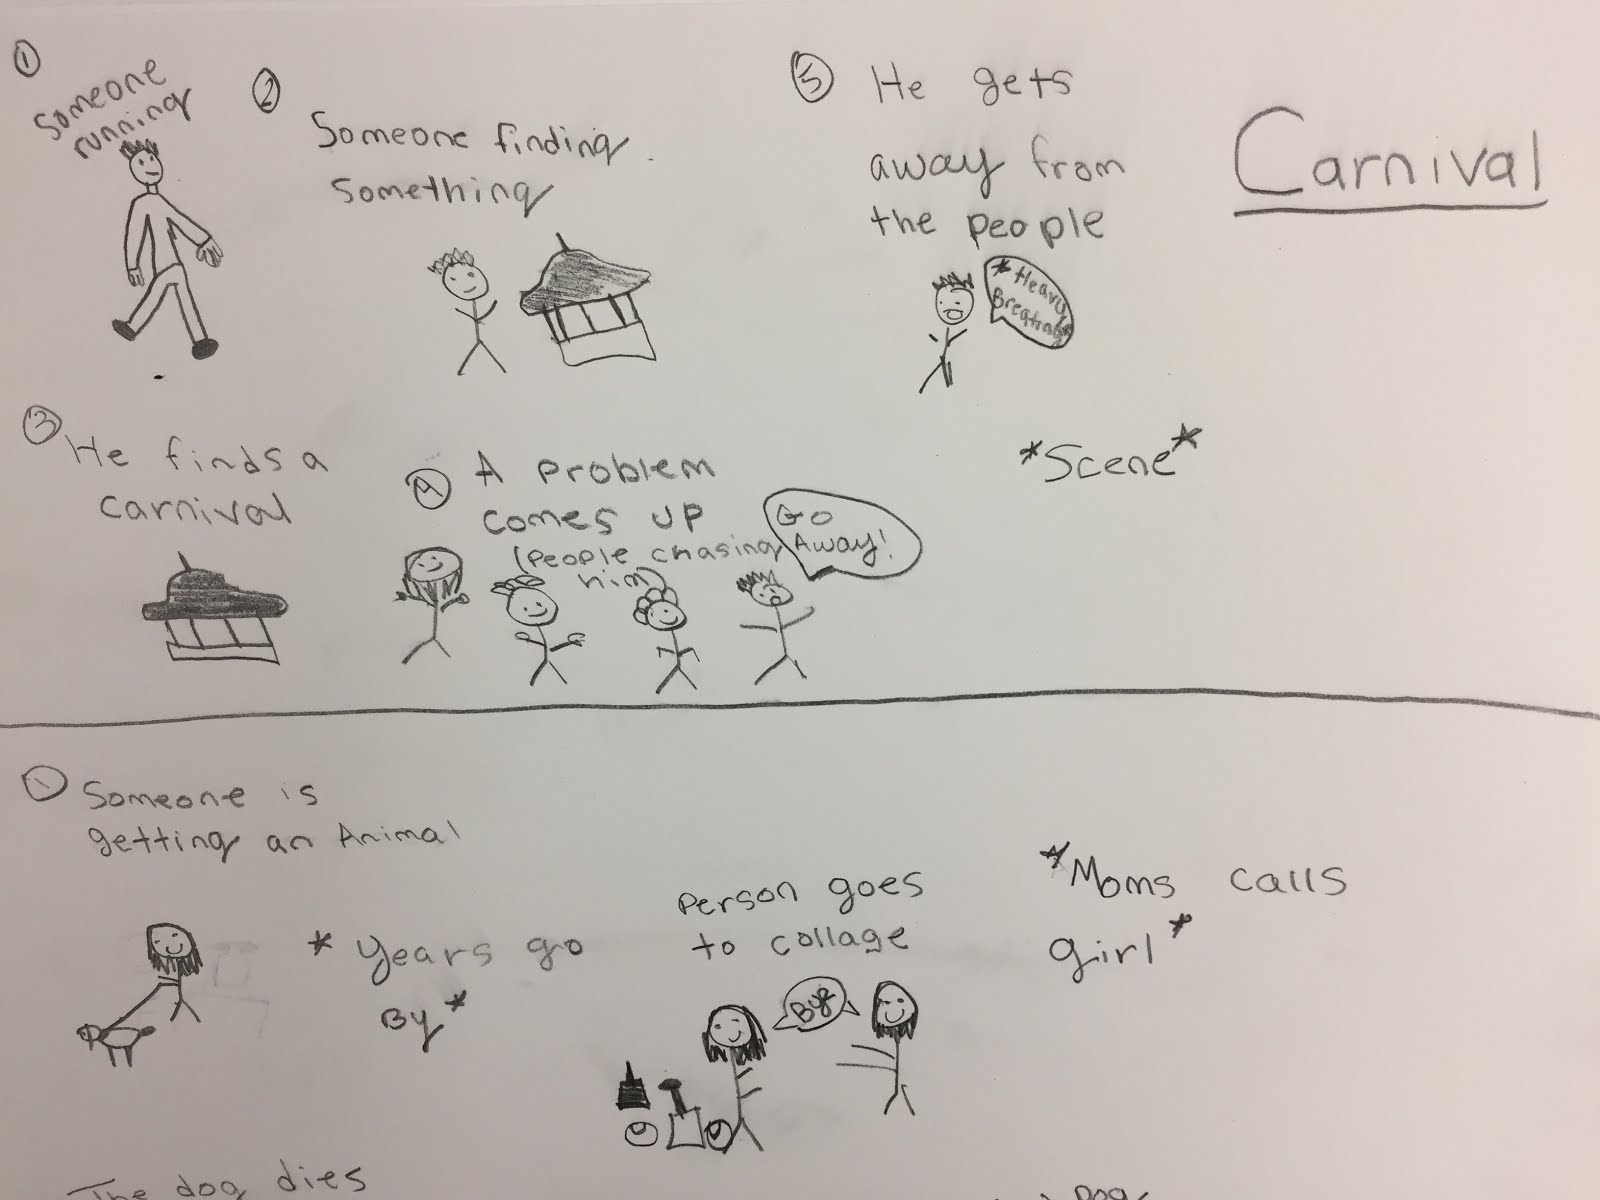 ①
Someone
running
②
Someone finding
Something
③
He finds a
carnival
④
A problem
comes up
(people chasing
him)
Go
Away!
⑤
He gets
away from
the people
*Heavy
Breating*
Carnival
*Scene*
①
Someone is
getting an Animal
* Years go
By *
Person goes
to collage
Bye
*Moms calls
girl*
The dog dies
Dog